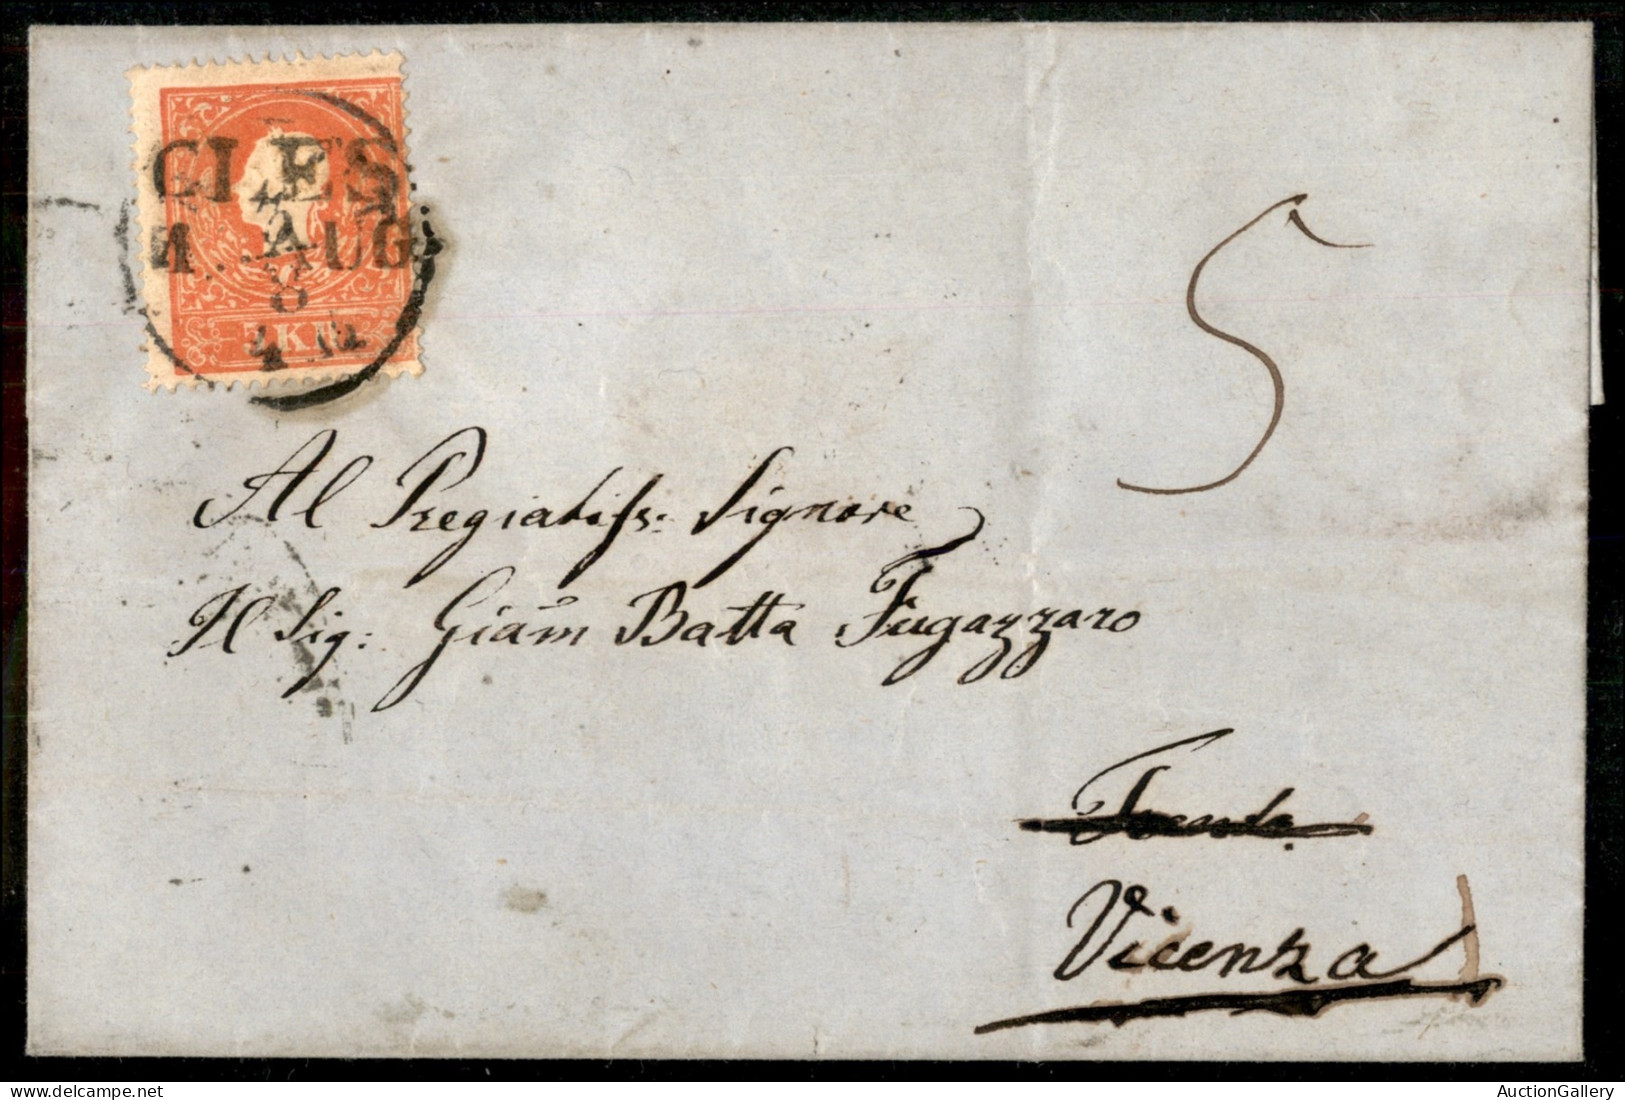 CLES
1. AUG.
5 KR
5
Al Pregiatiss: Signore
Il Sig: Giam Batta Fugazzaro
Trento.
Vicenza
AuctionGallery